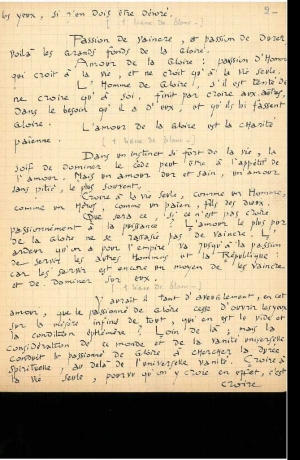 les yeux, si l'on doit être dévoré.
2-
( 1 blanc de blanc - )
Passion de vaincre, et passion de durer
Voilà les Grands fonds de la Gloire.
Amour de la Gloire : passion d'Homme
qui croit à la vie, et ne croit qu'à la vie seule.
L'Homme de Gloire, s'il est tenté de
ne croire qu'à soi, finit par croire aux autres,
dans le besoin qu'il a d'eux, et qu'ils lui fassent
Gloire.
L'amour de la Gloire est la charité
païenne.
Dans un instinct si fort de la vie, la
soif de dominer le cède peut être à l'appétit de
l'amour. Mais un amour dur et sain, un amour
sans pitié, le plus souvent.
Croire à la vie seule, comme un Homme,
comme un Héros, comme un païen, fils des dieux.
Que sera ce, si ce n'est pas croire
passionnément à la puissance ? L'amour le plus pur
de la Gloire ne se rassasie pas de vaincre. L'
ardeur qu'on a pour l'empire va jusqu'à la passion
de servir les autres Hommes et la République :
car les servir est encore un moyen de les vaincre
et de dominer sur eux.
Y aurait il tant d'aveuglement, en cet
amour, que le passionné de Gloire cesse d'ouvrir les yeux
sur la misère infinie de tout, qui en est le vide et
la condition éphémère ? Loin de là ; mais la
considération de ce monde et de la vanité universelle
conduit le passionné de Gloire à chercher la durée
spirituelle, au delà de l'universelle vanité. Croire à
la vie seule, pourvu qu'on y croie en effet, c'est
croire